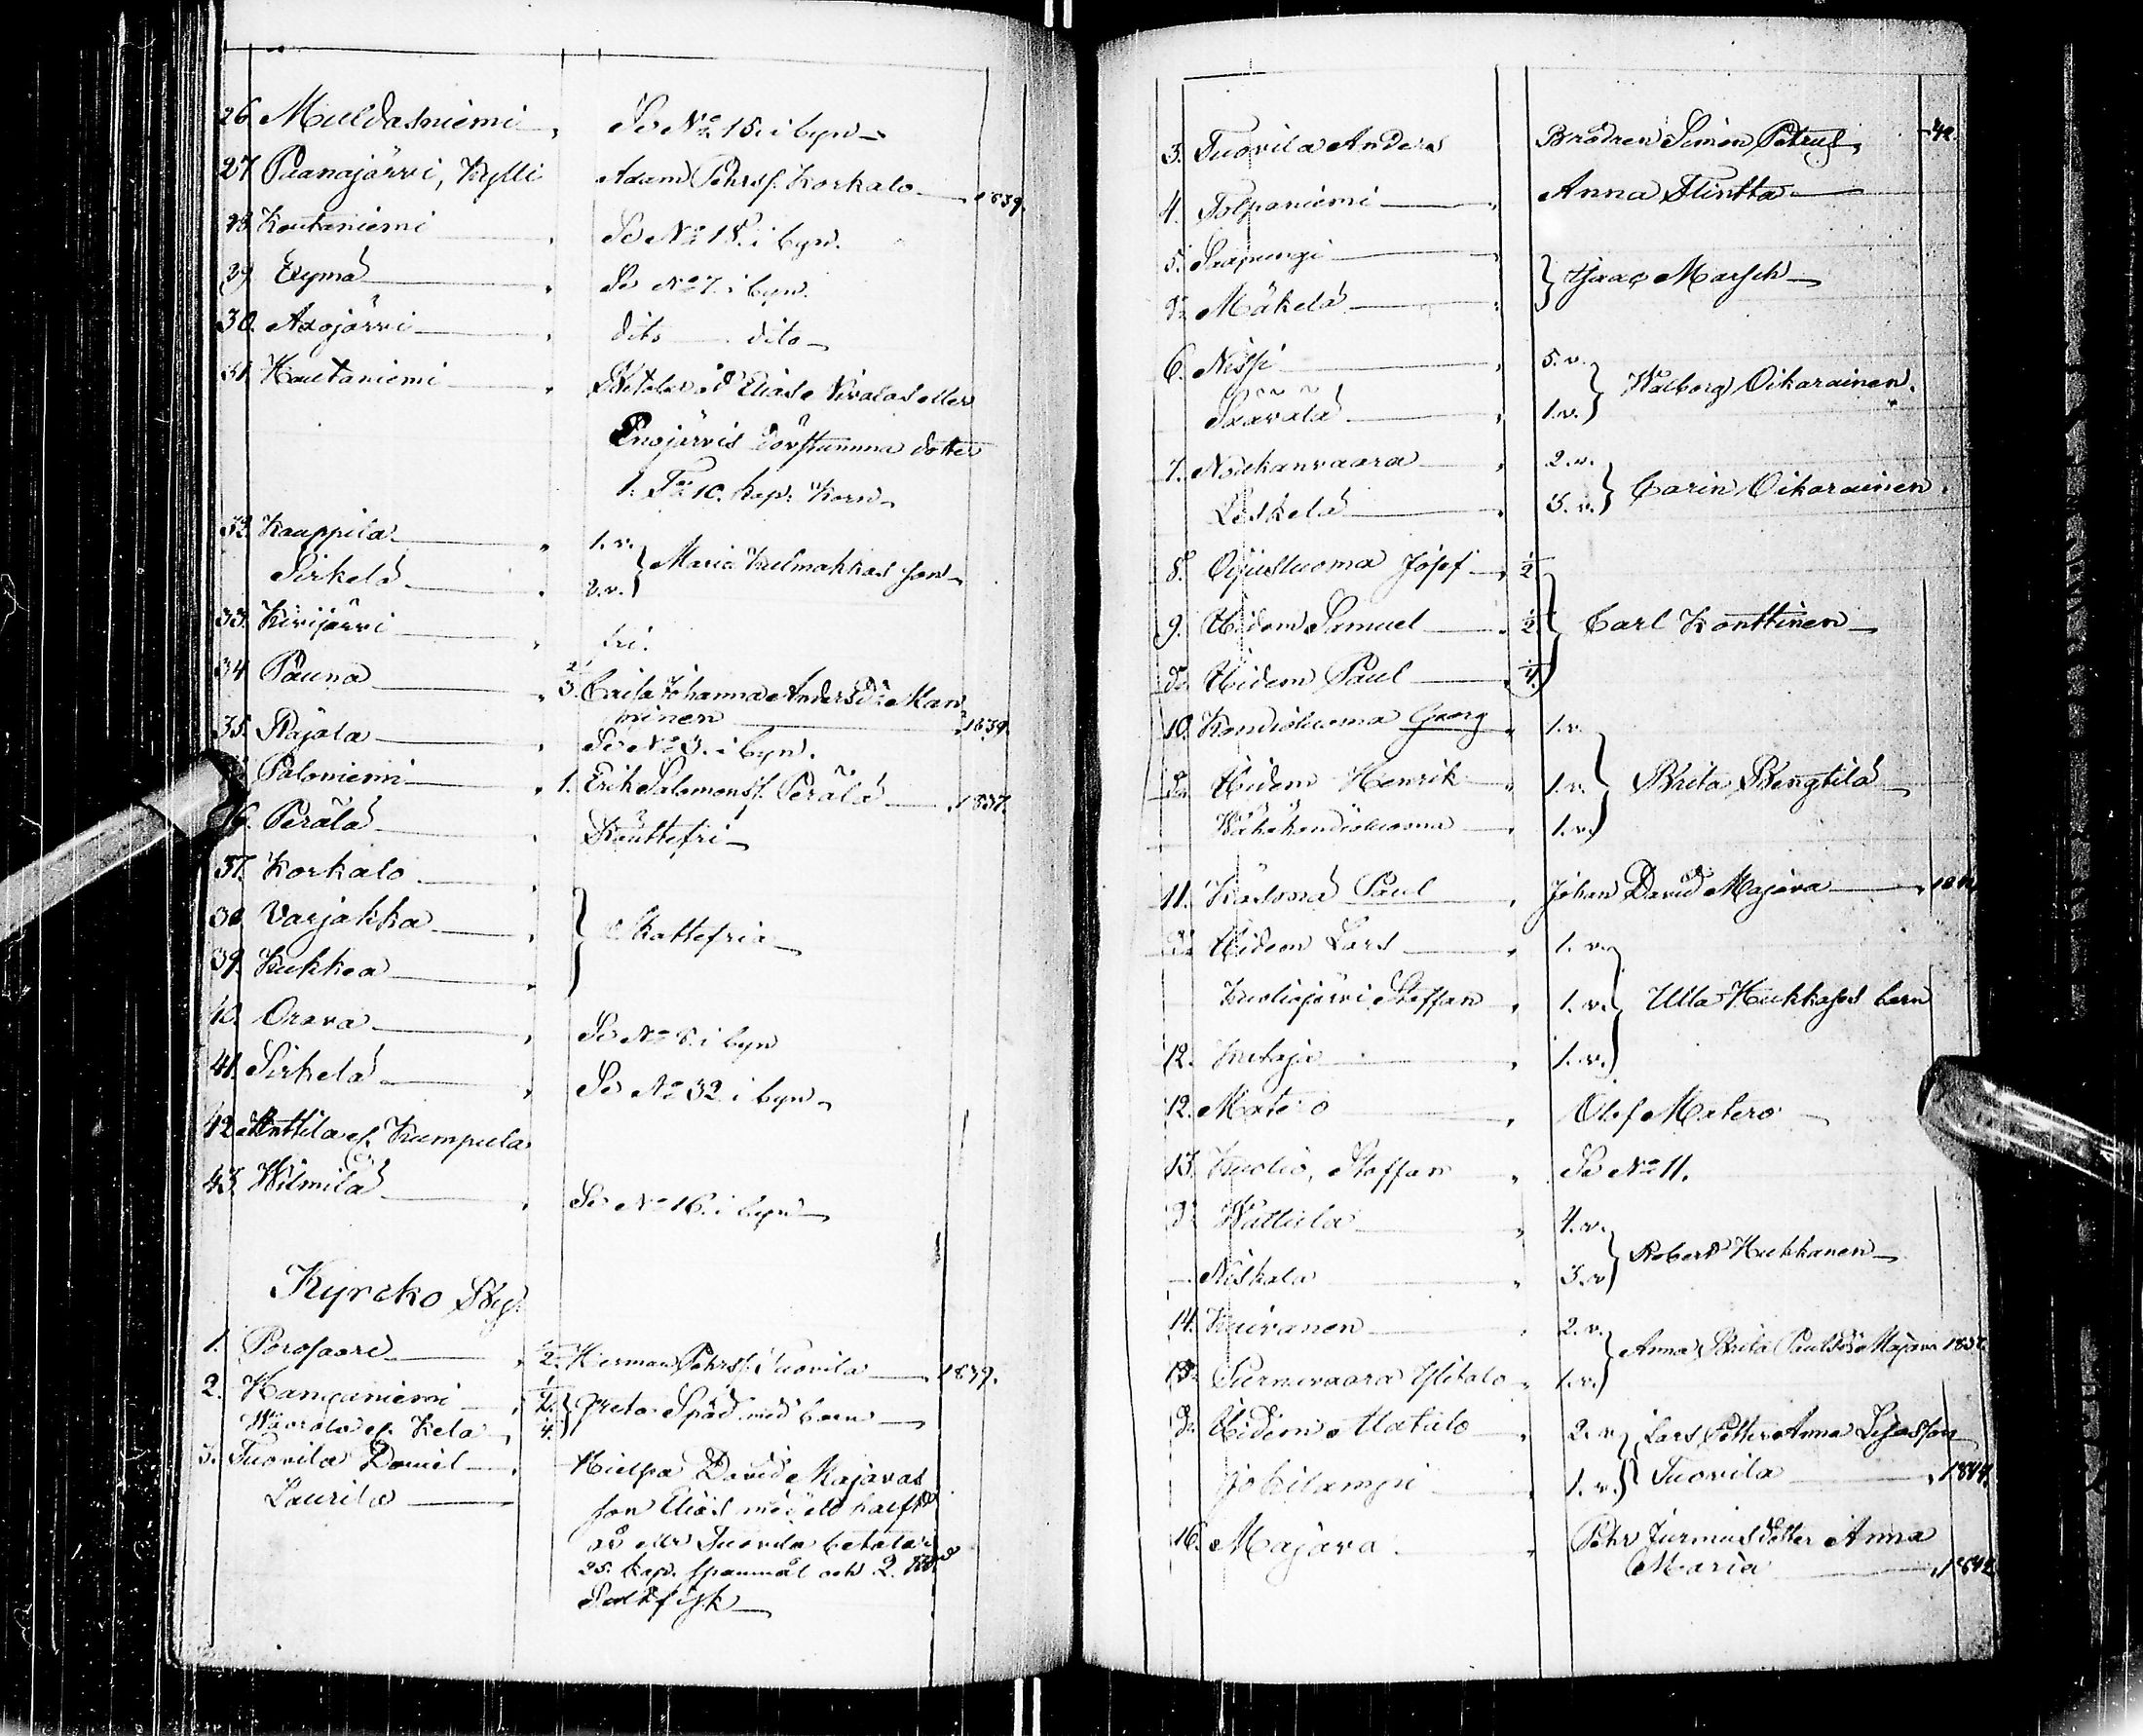 26. Muldasniemi Se No 15. i byn
27 Paanajärvi, Kylli Adam Pehrsf. Korkalo 1839.
28 Koutaniemi Se No 18. i byn.
29. Exymä Se No 7. i byn.
30. Axojärvi dito dito
31. Hautaniemi Eliase Nivalas eller
Enojärvis döfstumma dotter
1. 10. kap. Korn
32. Kauppila 1. v.
Maria Kulmakkas son
Sirkelä 2. v.
33. Kirijärvi fri.
34 Pauna Caisa Johanna Andersdr Man
ninen 1839.
35. Rajala Se No 3. i byn.
Paloniemi 1. Erik Salomonsf. Perälä 1837.
36. Perälä Skattefri
37. Korkalo
38. Varjakka Skattefria
39. Kukkea
40. Orava Se No 8. i byn
41. Sirkelä Se No 32 i byn
42 Anttila el. Kumpula
43. Wilmilä Se No 16. i byn
Kyrcko By:
1. Porosaari 1/2. Herman Pehrsf. Tuovila 1839.
2. Hanganiemi
Greta Späd med barn
el. Kela
3. Tuovila Daniel Hielpa David Majavas
Laurila son Elias med ett halft
år eller Tuovila betalar
25. kap. spanmål och 2.
Saltfisk
3. Tuovila Anders Brodren Simon Petrus, 42
4. Tolpaniemi Anna Flintta
5. Saapungi
Isaac Marsch
do Mäkelä
6. Nissi 5. v.
Walborg Oikarainen.
Säävälä 1. v.
7. Noukanvaara 2. v.
Carin Oikarainen.
Leskelä 3. v.
8. Ojusluoma Josef 1/2
9. Ibidem Samuel 1/2 Carl Konttinen
do Ibidem Paul 1/4
10. Kondioluoma Georg 1. v.
do Ibidem Henrik 1. v. Brita Bengtilä
Wähäkondioluoma 1. v.
11. Käsmä Paul Johan David Majava
do Ibidem Lars 1. v.
Kuoliojärvi Steffan 1. v. Ulla Hukkases barn
12. Kutaja 1. v.
12. Matero Olof Matero
13. Kuolio, Steffan Se No 11.
do Wuttula 4. v.
Robert Hukkanen
Niskala 3. v
14. Kuivanen 2. v.
Anna Brita Paulsdr Majava
15. Surnuvaara Ylitalo 1. v.
do Ibidem Alatalo 2. v. Lars Petter Anna Lisas son
Jokilampi 1. v. Tuovila 1844.
16. Majava Pehr Jurmus dotter Anna
Maria 1842